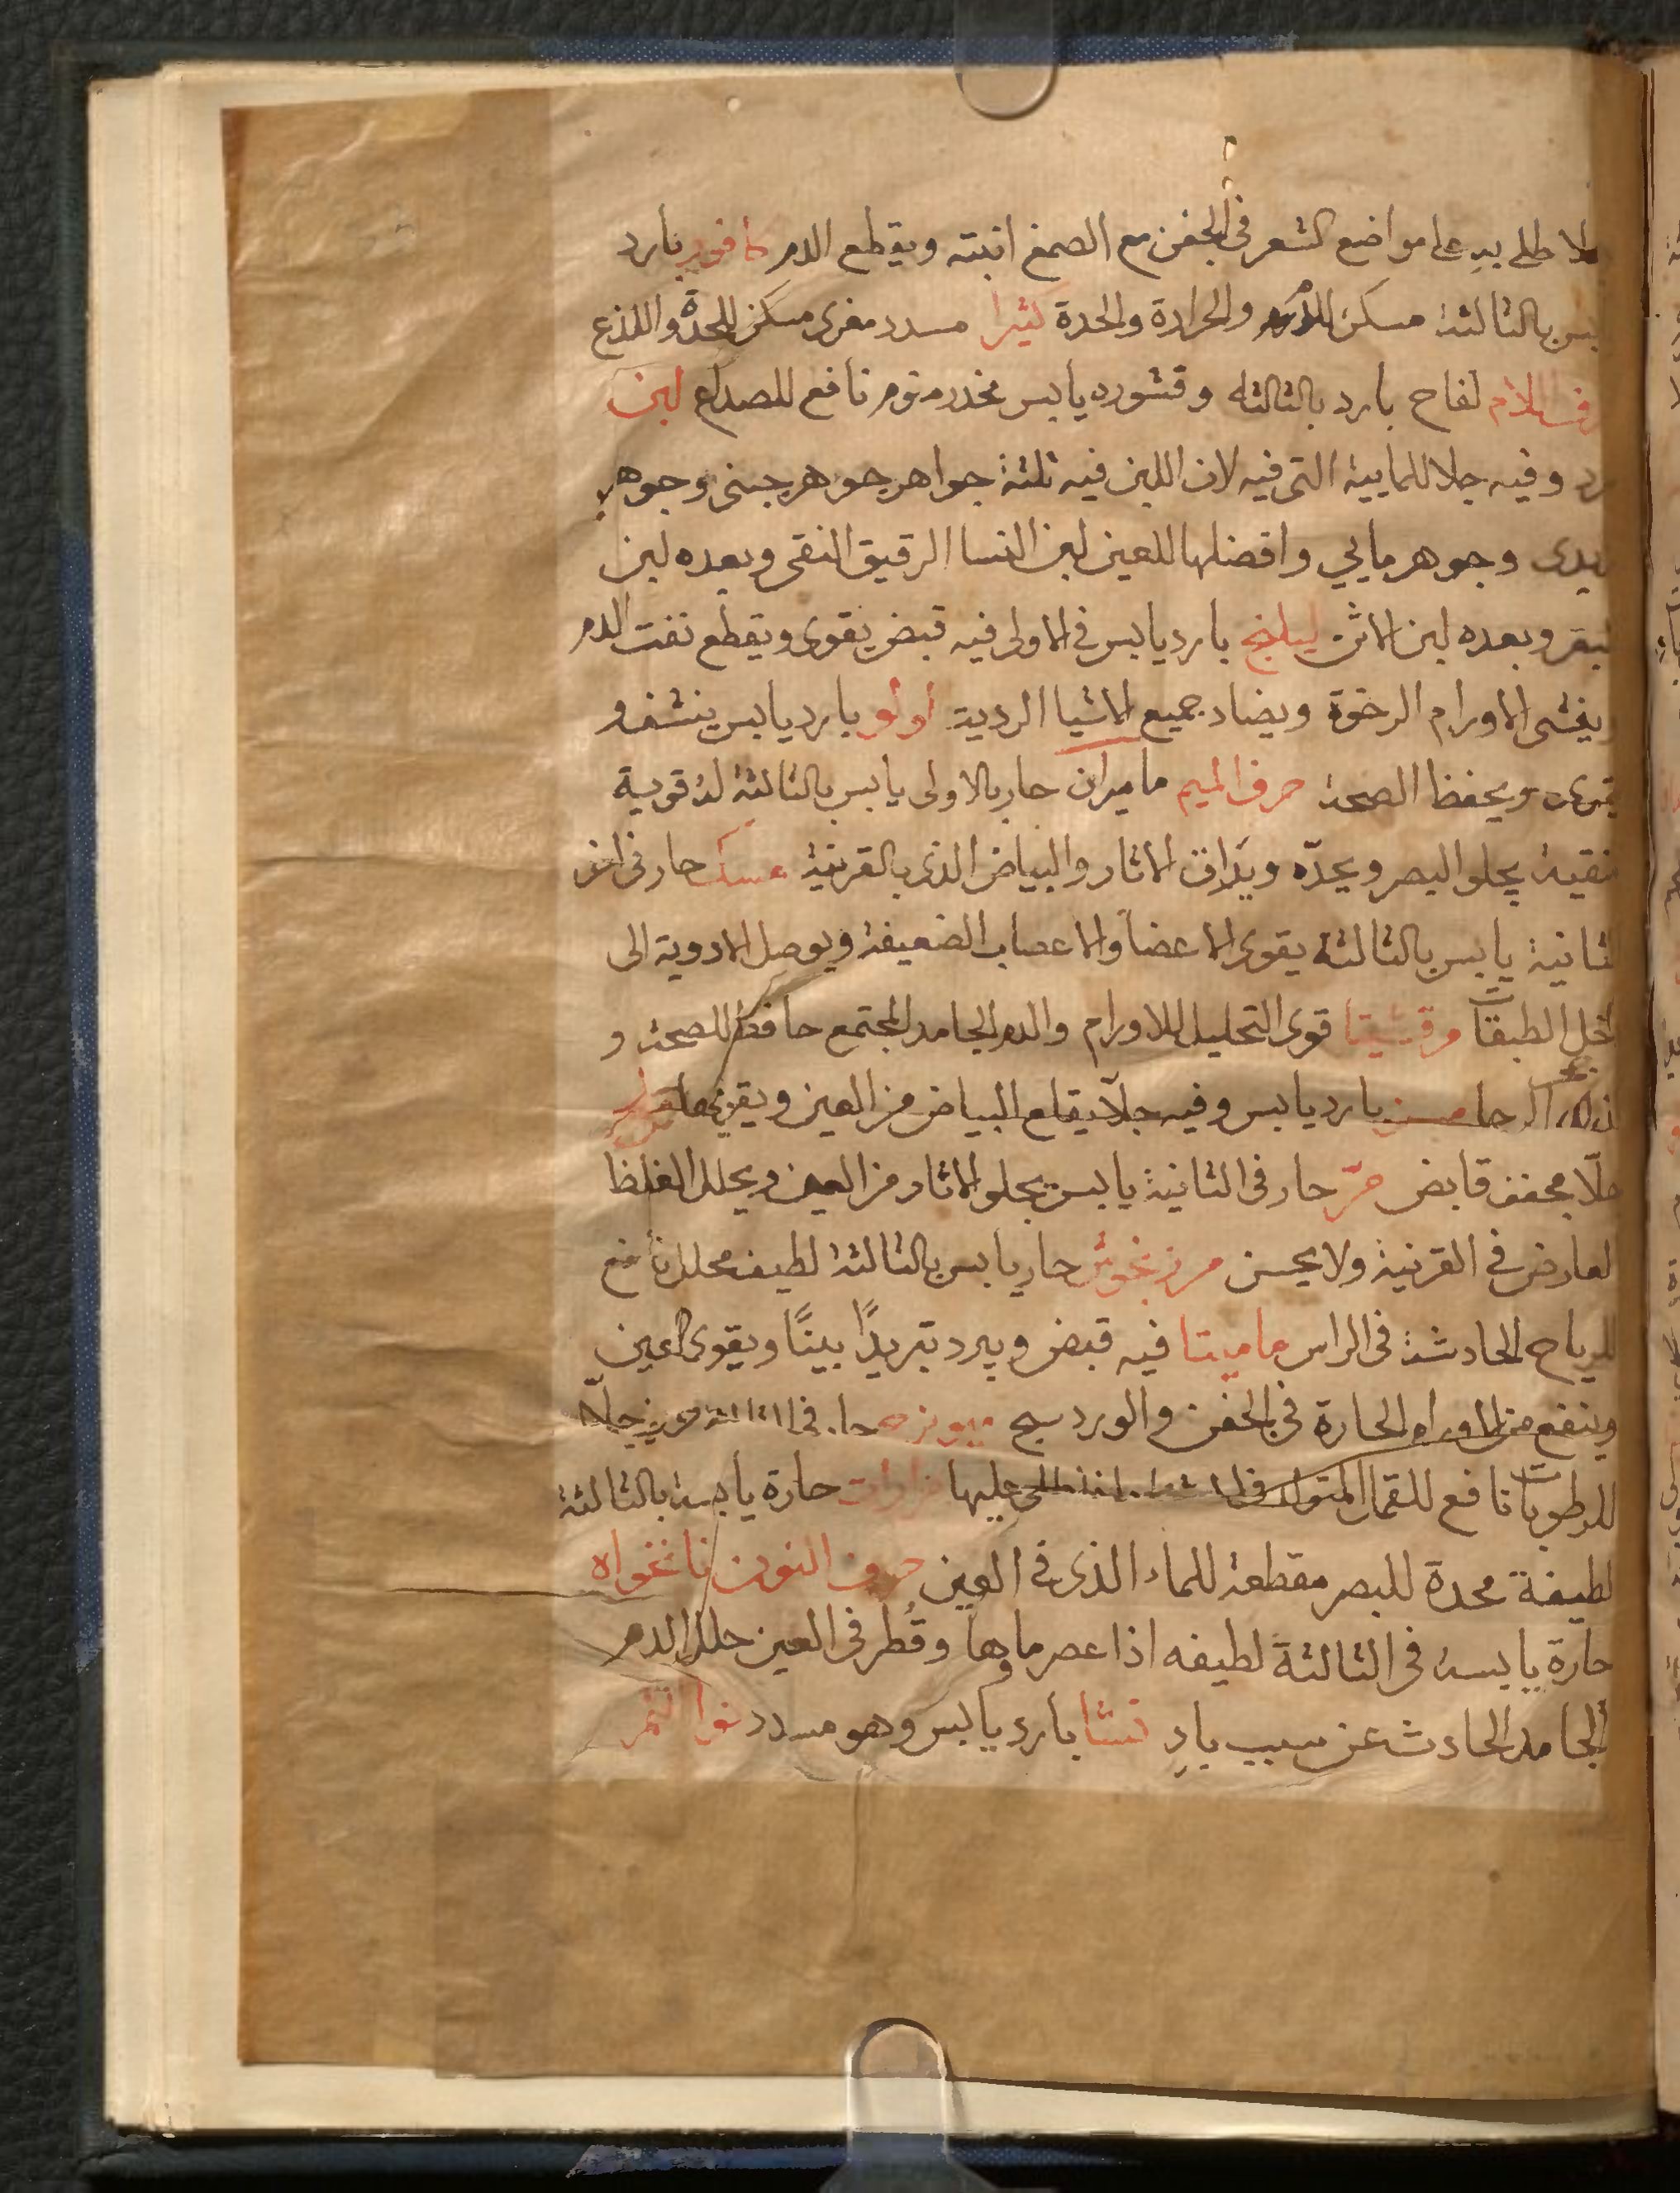 طلى به على مواضع الشعر في الجفن مع الصمغ انبته ويقطع الدم كافور بارد
يابس بالثالثة مسكن والحرارة والحدة كثيرا مسدد مغرى مسكن للحدة واللذع
حرف اللام لفاح بارد بالثالثه وقشوره يابس مخدر منوم نافع للصداع لبن
وفيه جلا للمايية التى فيه لان اللبن فيه ثلثة جواهر جوهر جبنى وجوهر
زبدى وجوهر مايي وافضلها للعين لبن النسا الرقيق النقى وبعده لبن
البقر وبعده لبن الاتن ليلنج بارد يابس في الاولى فيه قبض يقوى ويقطع نفث الدم
ويفشى الاورام الرخوة ويضاد جميع الاشيا الردية لولو بارد يابس ينشف و
يقوى ويحفظ الصحة حرف الميم ماميران حار بالاولى يابس بالثالثة له قوية
منقية يجلو البصر ويحدّه ويدق الاثار والبياض الذى بالقرنية مسك حار فى اخر
الثانية يابس بالثالثة يقوى الاعضا والاعصاب الضعيفة ويوصل الادوية الى
داخل الطبقات مرقشيتا قوى التحليل للاورام والدم الجامد المجتمع حافظ للصحة و
مسن بارد يابس وفيه جلا يقلع البياض من العين
جلّا مجفف قابض مرّ حار فى الثانية يابس يجلو الاثار من العين ويحلل الغلظ
العارض في القرنية ولا يحسن مرزنجوش حار يابس بالثالثة لطيف محلل نافع
للرياح الحادثة فى الراس ماميتا فيه قبض ويبرد تبريدًا بينًا ويقوى العين
وينفع من الاورام الحارة فى الجفن والوردينج ميويزج حار فى الثالثة جلّا
للرطوبات نافع للقمل المتولد فى الاشفار اذا طلى عليها مرارات حارة يابسة بالثالثة
لطيفة محدة للبصر مقطعة للماء الذى فى العين حرف النون نانخواه
حارّة يابسة فى الثالثة لطيفه اذا عصر ماوها وقُطر فى العين حلل الدم
الجامد الحادث عن سبب بادٍ نشا بارد يابس وهو مسدد نوا التمر